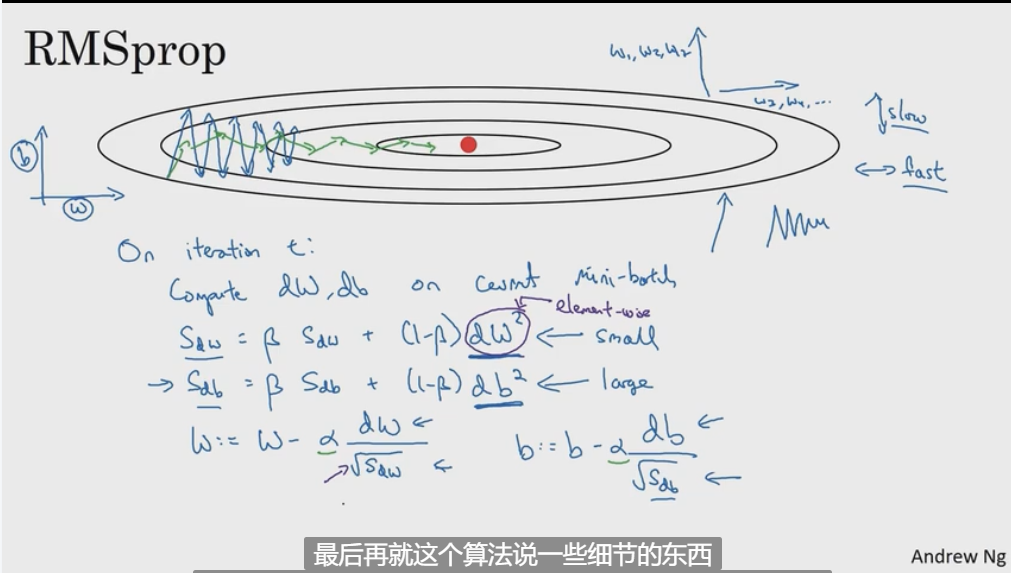 RMSprop
w₁, w₂, w₂
w₃, w₄, ...
slow
fast
b
w
On iteration t:
Compute dW, db on current mini-batch
element-wise
S_dw = β S_dw + (1-β) dW² ← small
→ S_db = β S_db + (1-β) db² ← large
W := W - α dW / √S_dw b := b - α db / √S_db
最后再就这个算法说一些细节的东西
Andrew Ng